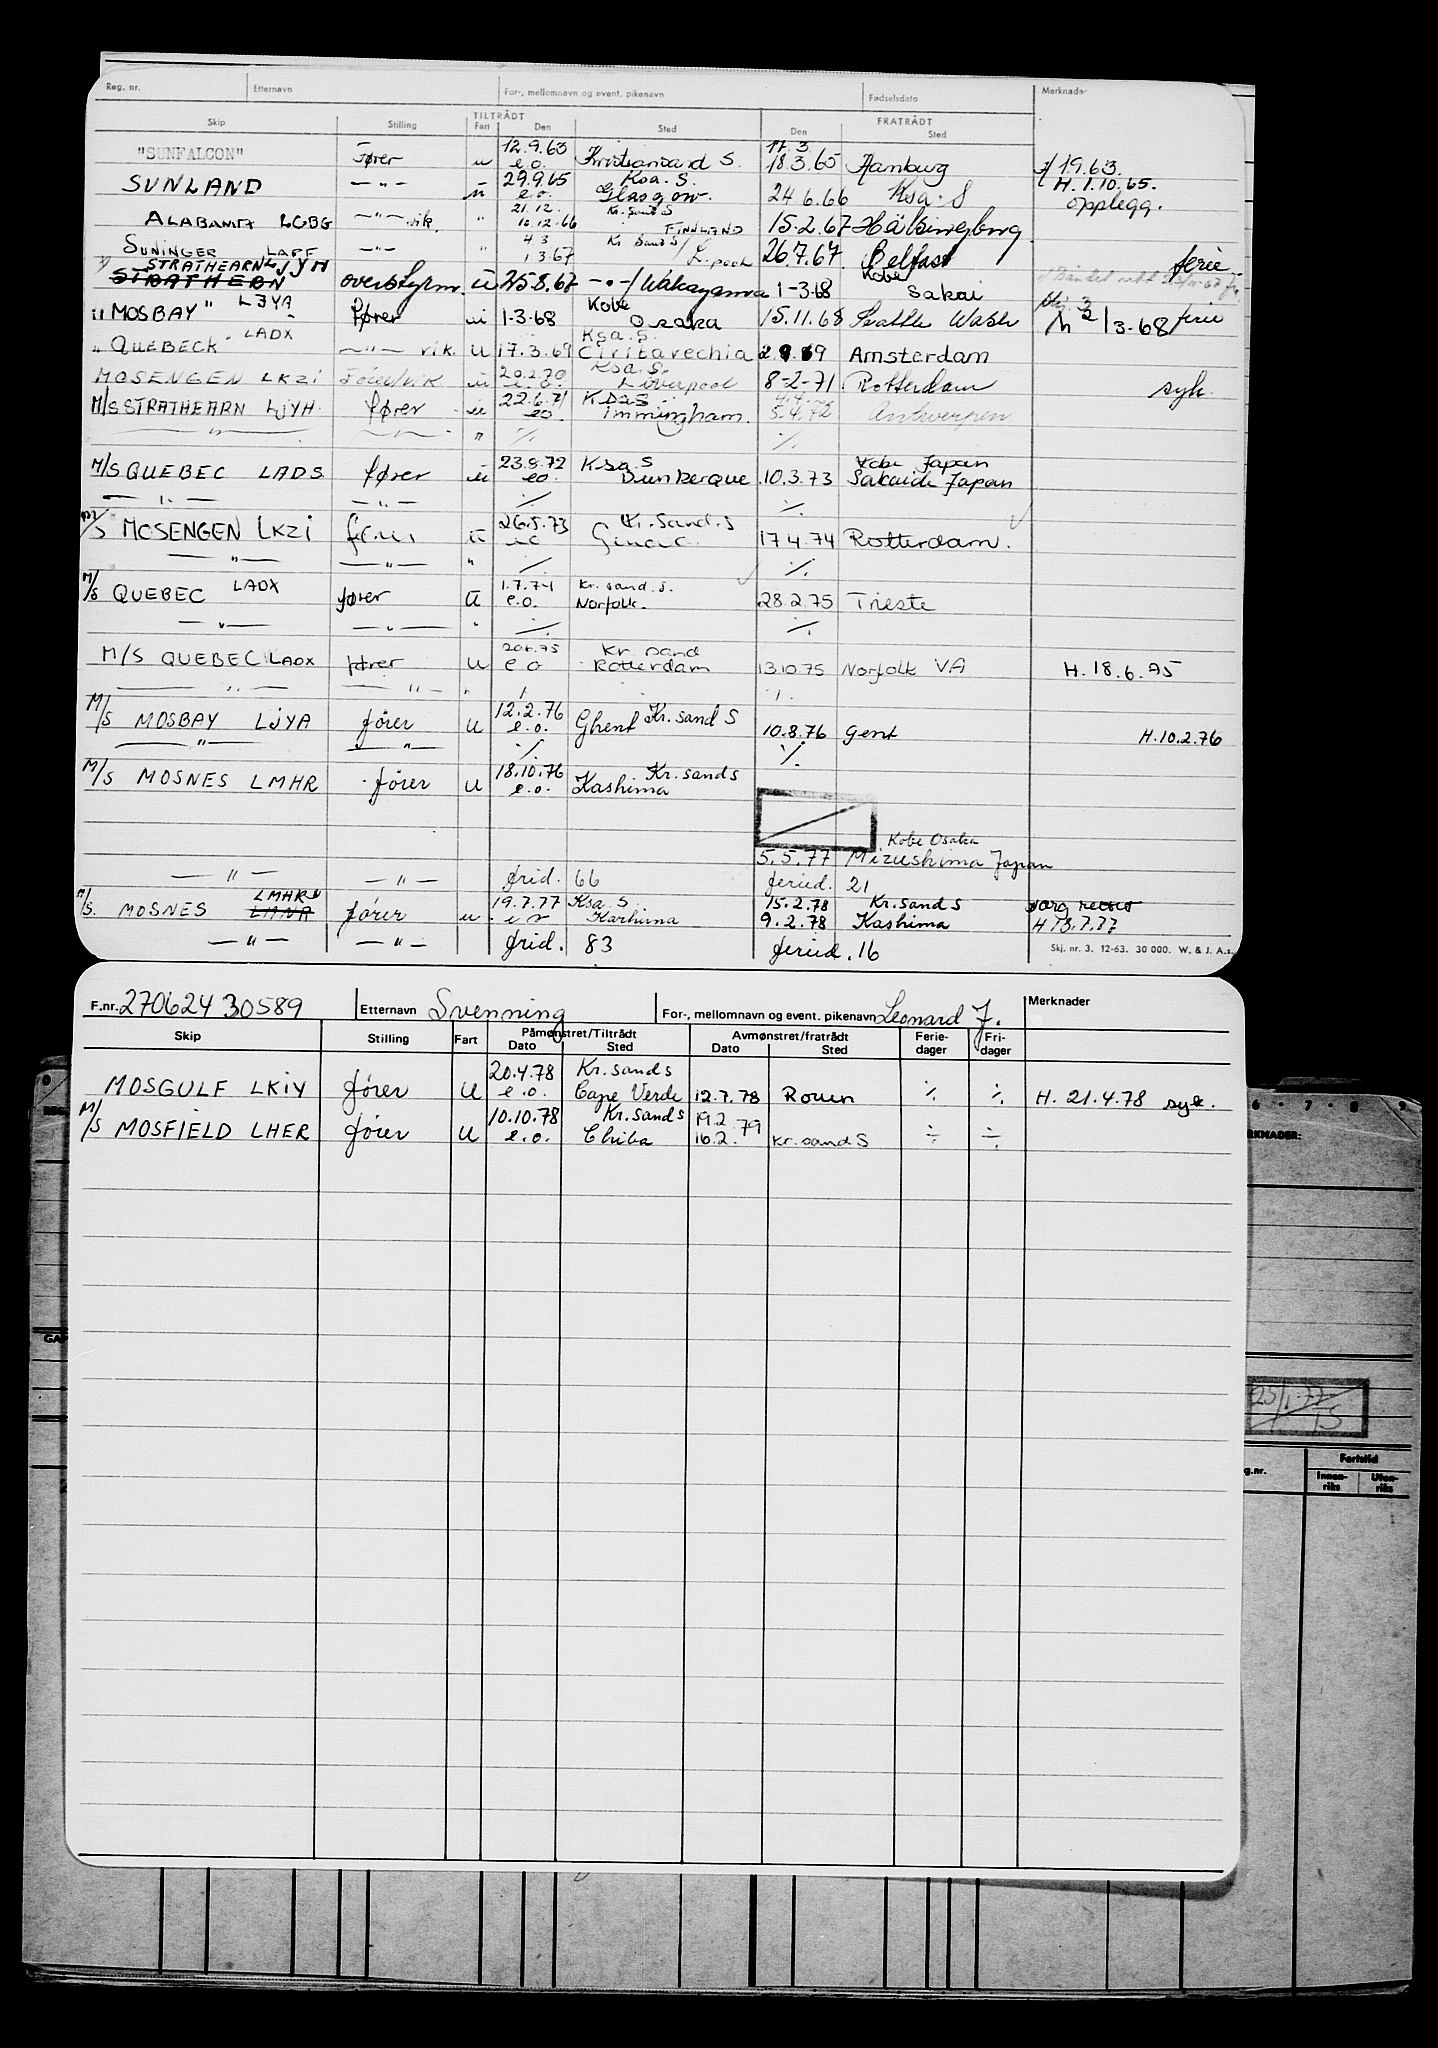 Reg. nr. Etternavn For-, mellomnavn og event. pikenavn Fødselsdato Merknader
TILTRÅDT FRATRÅDT
Skip Stilling Fart Den Sted Den Sted
12.9.63 17.3
"SUNFALCON" Fører u e.o. Kristiansand S. 18.3.65 Hamburg 19.63.
29.9.65 Ksa. S. H. 1.10.65.
SUNLAND —"— u e.o. Glasgow. 24.6.66 Ksa. S opplegg.
21.12. Kr. Sand S
ALABAMA LCBG —"— vik. " 16.12.66 FINNLAND 15.2.67 Hälsingborg
4.3 Kr Sand S/
SUNINGER LAFF —"— " 1.3.67 L.pool 26.7.67 Belfast ferie
STRATHEARN LJYH Kobe
STRATHERN overstyrm. u 25.8.67 —"—/Wakayama 1-3-68 Sakai
Kobe
" MOSBAY " LJYA fører u 1-3-68 Osaka 15.11.68 Seattle Wash 3-68 ferie
LADX Ksa. S.
" QUEBECK —"— vik. u 17.3.69 Civitavechia 69 Amsterdam
20.2.70 Ksa. S.
MOSENGEN LKZI Fører/vik u e.o. Liverpool 8-2-71 Rotterdam syk.
22.6.71 Ksa S 4.4.
M/S STRATHEARN LJYH fører u eo. immingham. 5.4.72 Antwerpen
—"— —"— " ./. ./.
23.8.72 Ksa S Kobe Japan
M/S QUEBEC LADS fører u eo. Dunkerque 10.3.73 Sakaide Japan
—"— —"— ./. ./.
26.5.73 Kr. Sand. S
M/S MOSENGEN LKZI fører u 17.4.74 Rotterdam.
—"— —"— " ./. ./.
1.7.74 Kr. sand. S.
M/S QUEBEC LADX fører u e.o. Norfolk. 28.2.75 Trieste
—"— —"— " ./. ./.
20.6.75 Kr. sand
M/S QUEBEC LADX fører u e o Rotterdam 13.10.75 Norfolk VA H. 18.6.75
—"— —"— " ./. ./.
12.2.76 Kr. sand S
M/S MOSBAY LJYA fører u e.o. Ghent 10.8.76 Gent H.10.2.76
—"— —"— ./. ./.
18.10.76 Kr. sand S
M/S MOSNES LMHR fører u e.o. Kashima
Kobe Osaka
5.5.77 Mizushima Japan
—"— —"— frid. 66 feried. 21
LMHR 19.7.77 Ksa. S 15.2.78 Kr. sand S
M/S. MOSNES fører u Kashima 9.2.78 Kashima
—"— —"— frid. 83 feried. 16
Skj. nr. 3. 12-63. 30 000. W. & J. A.s.
F.nr. 270624 30589 Etternavn Svenning For-, mellomnavn og event. pikenavn Leonard J. Merknader
Skip Stilling Fart Påmønstret/Tiltrådt Avmønstret/fratrådt Ferie- Fri-
Dato Sted Dato Sted dager dager
20.4.78 Kr. sand S
MOSGULF LKIY fører U e.o. Cape Verde 12.7.78 Rouen ./. ./. H. 21.4.78 syk.
10.10.78 Kr. sand S 19.2
M/S MOSFIELD LHER fører U e.o. Chiba 16.2.79 Kr. sand S ./. ./.
6 7 8 9
RKNADER:
25/1-77
TS
g.nr. Fartstid
Innen- Uten-
riks riks